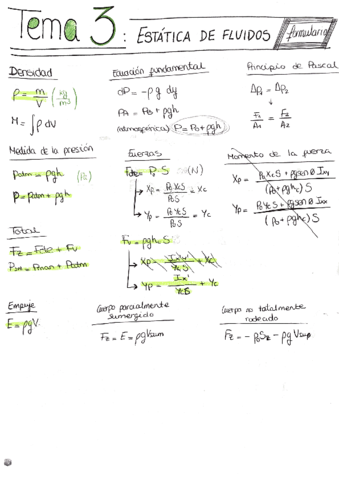 Tema 3: ESTÁTICA DE FLUIDOS formulario
Densidad
ρ = m/V (kg/m³)
M = ∫ρ dV
Ecuación fundamental
dP = -ρ g dy
PA = PB + ρgh
(atmosférica) P = P0 + ρgh
Principio de Pascal
Δp1 = Δp2
↓
F1/A1 = F2/A2
Medida de la presión
Patm = ρgh (Pa)
P = Patm + ρgh
Fuerzas
P · S (N)
→ Xp = P0XcS/P0S = Xc
→ Yp = P0YcS/P0S = Yc
Fv = ρghc S
→ Xp = Ix'y'/YcS + Xc
→ Yp = Ix'/YcS + Yc
Momento de la fuerza
Xp = P0XcS + ρgsenθ Ixy/(P0 + ρghc)S
Yp = P0YcS + ρgsenθ Ixx/(P0 + ρghc)S
Total
+ Fv
= Pman + Patm
Empuje
E = ρgV
Cuerpo parcialmente
sumergido
Fz = E = ρgVsum
Cuerpo no totalmente
rodeado
Fz = -P0Sz - ρg